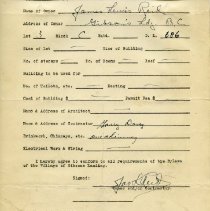 Name of Owner James Lewis Reid
Address of Owner Gibson's Ldg. B.C.
Lot 3 Block C Subd. D.L. 686
Size of Lot Size of Building
No. of storeys No. of Rooms Roof
Building to be used for
No. of Toilets, etc. Heating
Cost of Building $ Permit Fee $
Name & Address of Architect
Name & Address of Contractor Harry
Brickwork, Chimneys, etc. one chimney
Electrical Work & Wiring
I hereby agree to conform to all requirements of the Bylaws
of the Village of Gibsons Landing.
Signed:
Owner and/or Contractor.